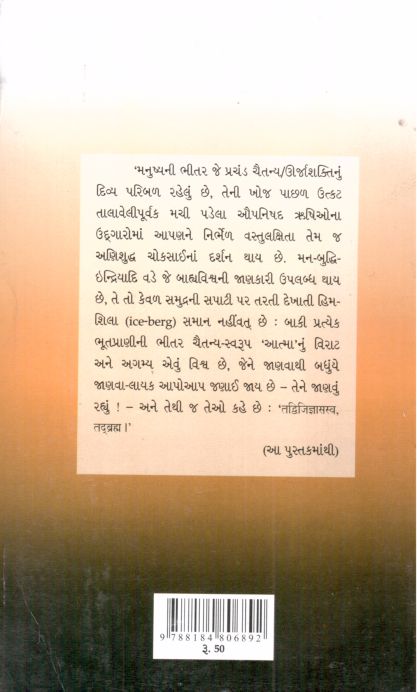 ‘મનુષ્યની ભીતર જે પ્રચંડ ચૈતન્ય/ઊર્જાશક્તિનું
દિવ્ય પરિબળ રહેલું છે, તેની ખોજ પાછળ ઉત્કટ
તાલાવેલીપૂર્વક મચી પડેલા ઔપનિષદ ઋષિઓના
ઉદ્‌ગારોમાં આપણને નિર્ભેળ વસ્તુલક્ષિતા તેમ જ
અણિશુદ્ધ ચોકસાઈનાં દર્શન થાય છે. મન-બુદ્ધિ-
ઇન્દ્રિયાદિ વડે જે બાહ્યવિશ્વની જાણકારી ઉપલબ્ધ થાય
છે, તે તો કેવળ સમુદ્રની સપાટી પર તરતી દેખાતી હિમ-
શિલા (ice-berg) સમાન નહીંવત્ છે : બાકી પ્રત્યેક
ભૂતપ્રાણીની ભીતર ચૈતન્ય-સ્વરૂપ ‘આત્મા’નું વિરાટ
અને અગમ્ય એવું વિશ્વ છે, જેને જાણવાથી બધુંયે
જાણવા-લાયક આપોઆપ જણાઈ જાય છે – તેને જાણવું
રહ્યું ! – અને તેથી જ તેઓ કહે છે : ‘तद्विजिज्ञासस्व,
तद्ब्रह्म ।’
(આ પુસ્તકમાંથી)
9 788184 806892
રૂ. 50